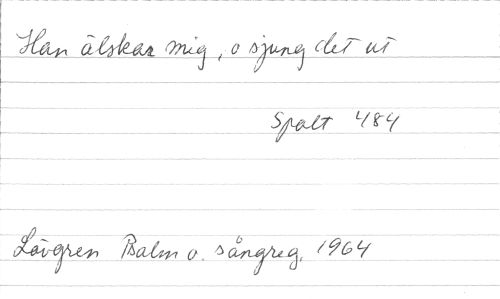 Han älskar mig, o sjung det ut
Spalt 484
Lövgren Psalm o. sångreg. 1964